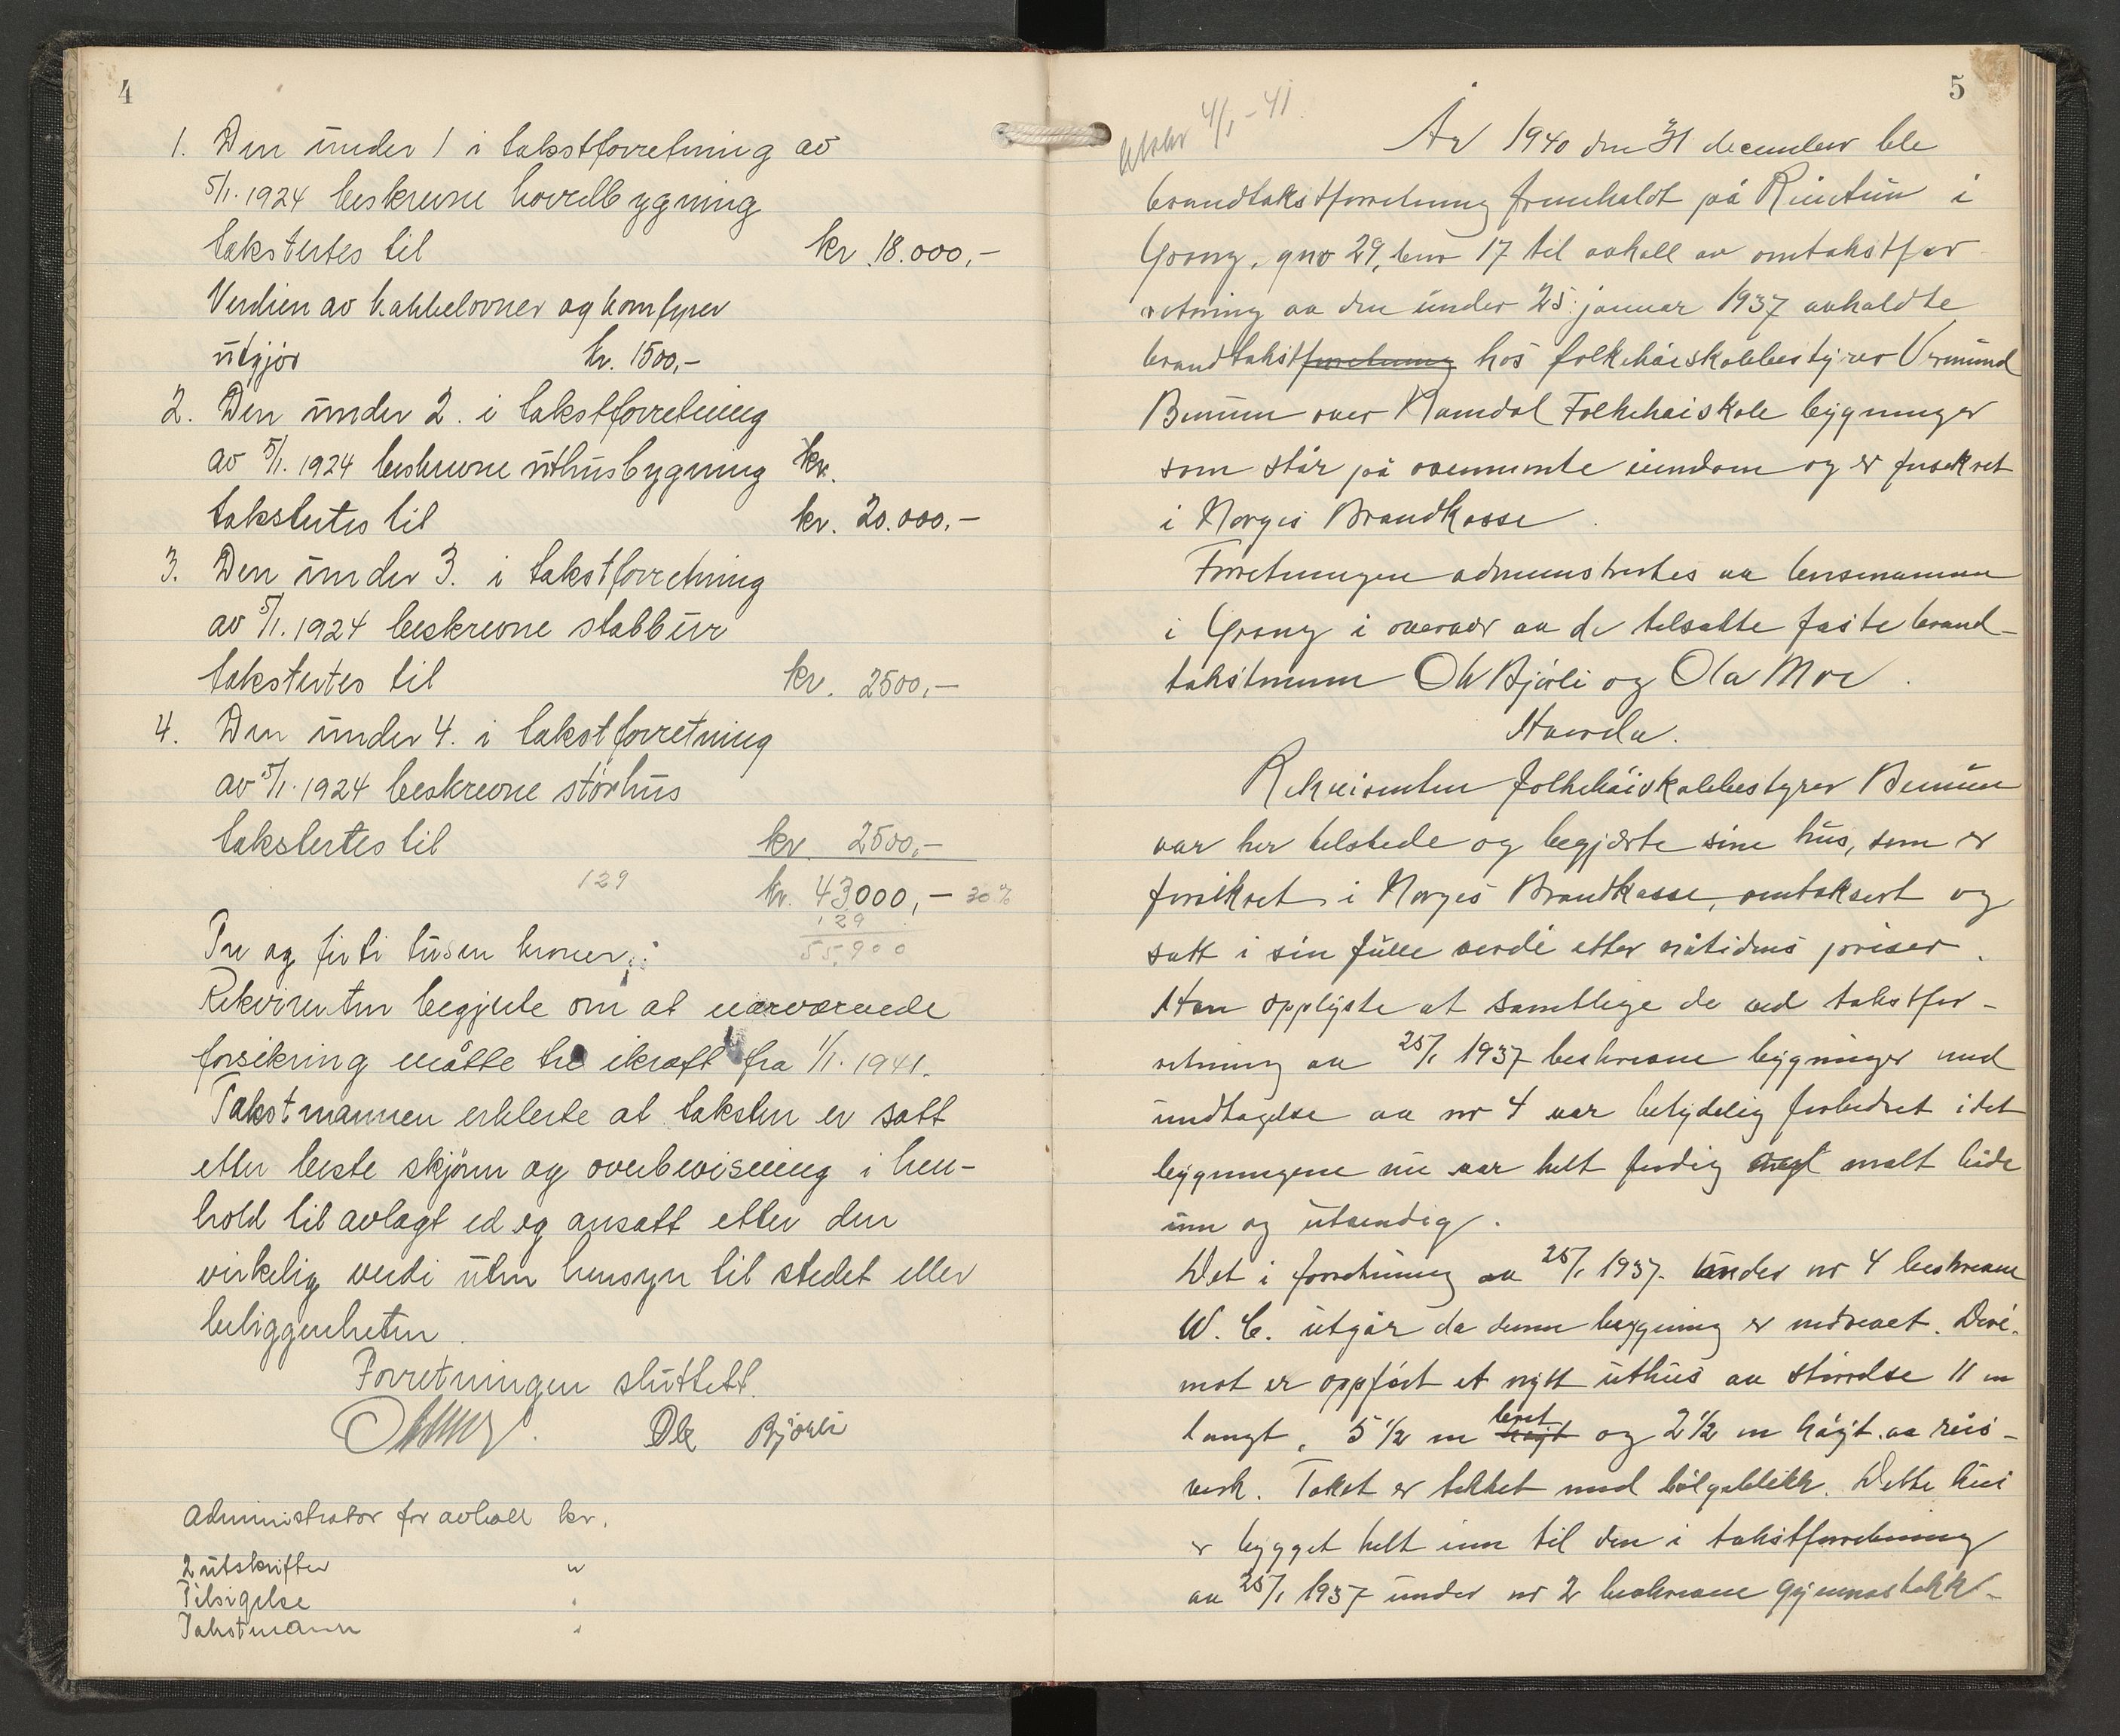 4
1. Den under 1 i takstforretning av
5/1. 1924 beskrevne hovedbygning
takstertes til kr. 18.000,-
Verdien av kakkelovner og komfyrer
utgjør kr. 1500,-
2. Den under 2. i takstforretning
av 5/1. 1924 beskrevne uthusbygning kr.
takstertes til kr. 20.000,-
3. Den under 3. i takstforretning
av 5/1. 1924 beskrevne stabbur
takstertes til kr. 2500,-
4. Den under 4. i takstforretning
av 5/1. 1924 beskrevne størhus
takstertes til kr. 2500,-
129 kr. 43000,- 30%
129
55.900
Tre og firti tusen kroner.
Rekvirenten begjerte om at nærværende
forsikring måtte tre ikraft fra 1/1. 1941.
Takstmannen erklerte at taksten er satt
etter beste skjønn og overbevisning i hen-
hold til avlagt ed og ansatt etter den
virkelig verdi uten hensyn til stedet eller
beliggenheten.
Forretningen sluttett.
Ole Bjørli
Administrator for avhold kr.
2 utskrifter "
Tilsigelse "
Takstmann "
5
4/1-41
År 1940 den 31 december ble
brandtakstforretning fremholdt på Rinctun i
Grong, gnr 29, bnr 17 til avhold av omtakstfor
retning av den under 25. januar 1937 avholdte
brandtakstforretning hos folkehøiskolebestyrer Vermund
Benum over Namdal Folkehøiskole bygninger
som står på ovennemte eiendom og er forsikret
i Norges Brandkasse.
Forretningen administrertes av lensmannen
i Grong i overvær av de tilsatte faste brand-
takstmenn Ole Bjørli og Ola Moe.
Hvorda.
Rekvirenten folkehøiskolebestyrer Benum
var her tilstede og begjærte sine hus, som er
forsikret i Norges Brandkasse, omtaksert og
satt i sin fulle verdi etter nåtidens priser.
Han opplyste at samtlige de ved takstfor-
retning av 25/1 1937 beskrevne bygninger med
undtagelse av nr 4 var betydelig forbedret idet
bygningene nu var helt ferdig malt både
inn og utvendig.
Det i forretning av 25/1 1937. under nr 4 beskrevne
W. C. utgår da denne bygning er nedrevet. Deri-
mot er oppført et nytt uthus av størrelse 11 m
langt, 5 1/2 m høgt bret og 2 1/2 m høgt av reis-
verk. Taket er tekket med bølgeblikk. Dette hus
er bygget helt inn til den i takstforretning
av 25/1 1937 under nr 2 beskrevne gymnastikk-